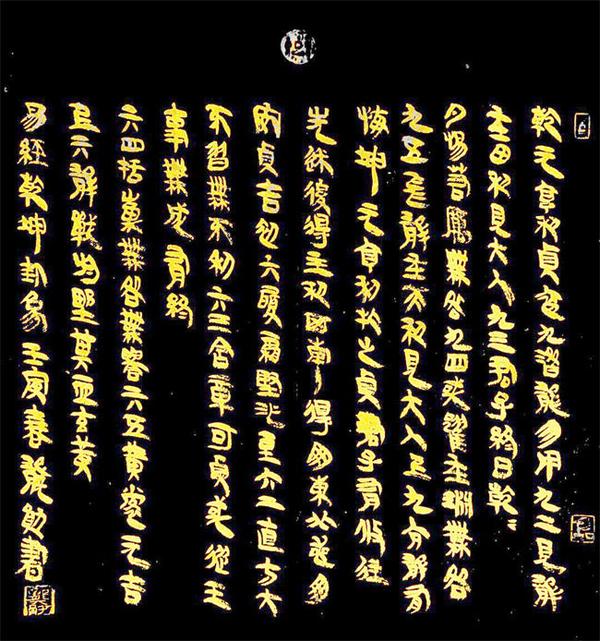 乾元亨利貞初九潛龍勿用九二見龍
在田利見大人九三君子終日乾〻
夕惕若厲無咎九四或躍在淵無咎
九五飛龍在天利見大人上九亢龍有
悔坤元亨利牝之貞君子有攸往
先迷後得主利西南得朋東北喪朋
貞吉初六履霜堅冰至六二直方大
不習無不利六三含章可貞或從王
事無成有終
六四括囊無咎無譽六五黃裳元吉
上六龍戰於野其血玄黃
易經乾坤卦象壬寅春書